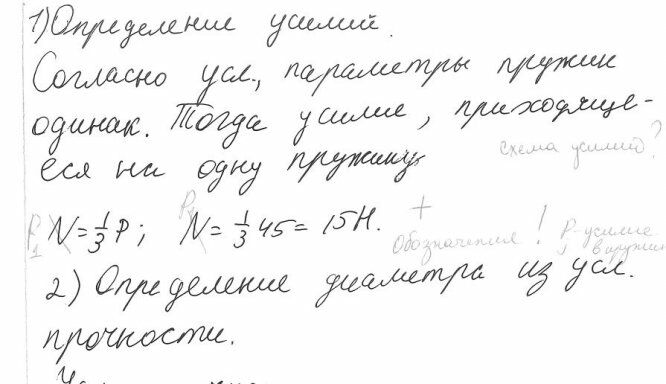 1) Определение усилий.
Согласно усл., параметры пружин
одинак. Тогда усилие, приходяще-
еся на одну пружину
схема усилий?
P₁ N = 1/3 P; P₁ N = 1/3 45 = 15Н. +
Обозначения! P-усилие
в пружине
2) Определение диаметра из усл.
прочности.